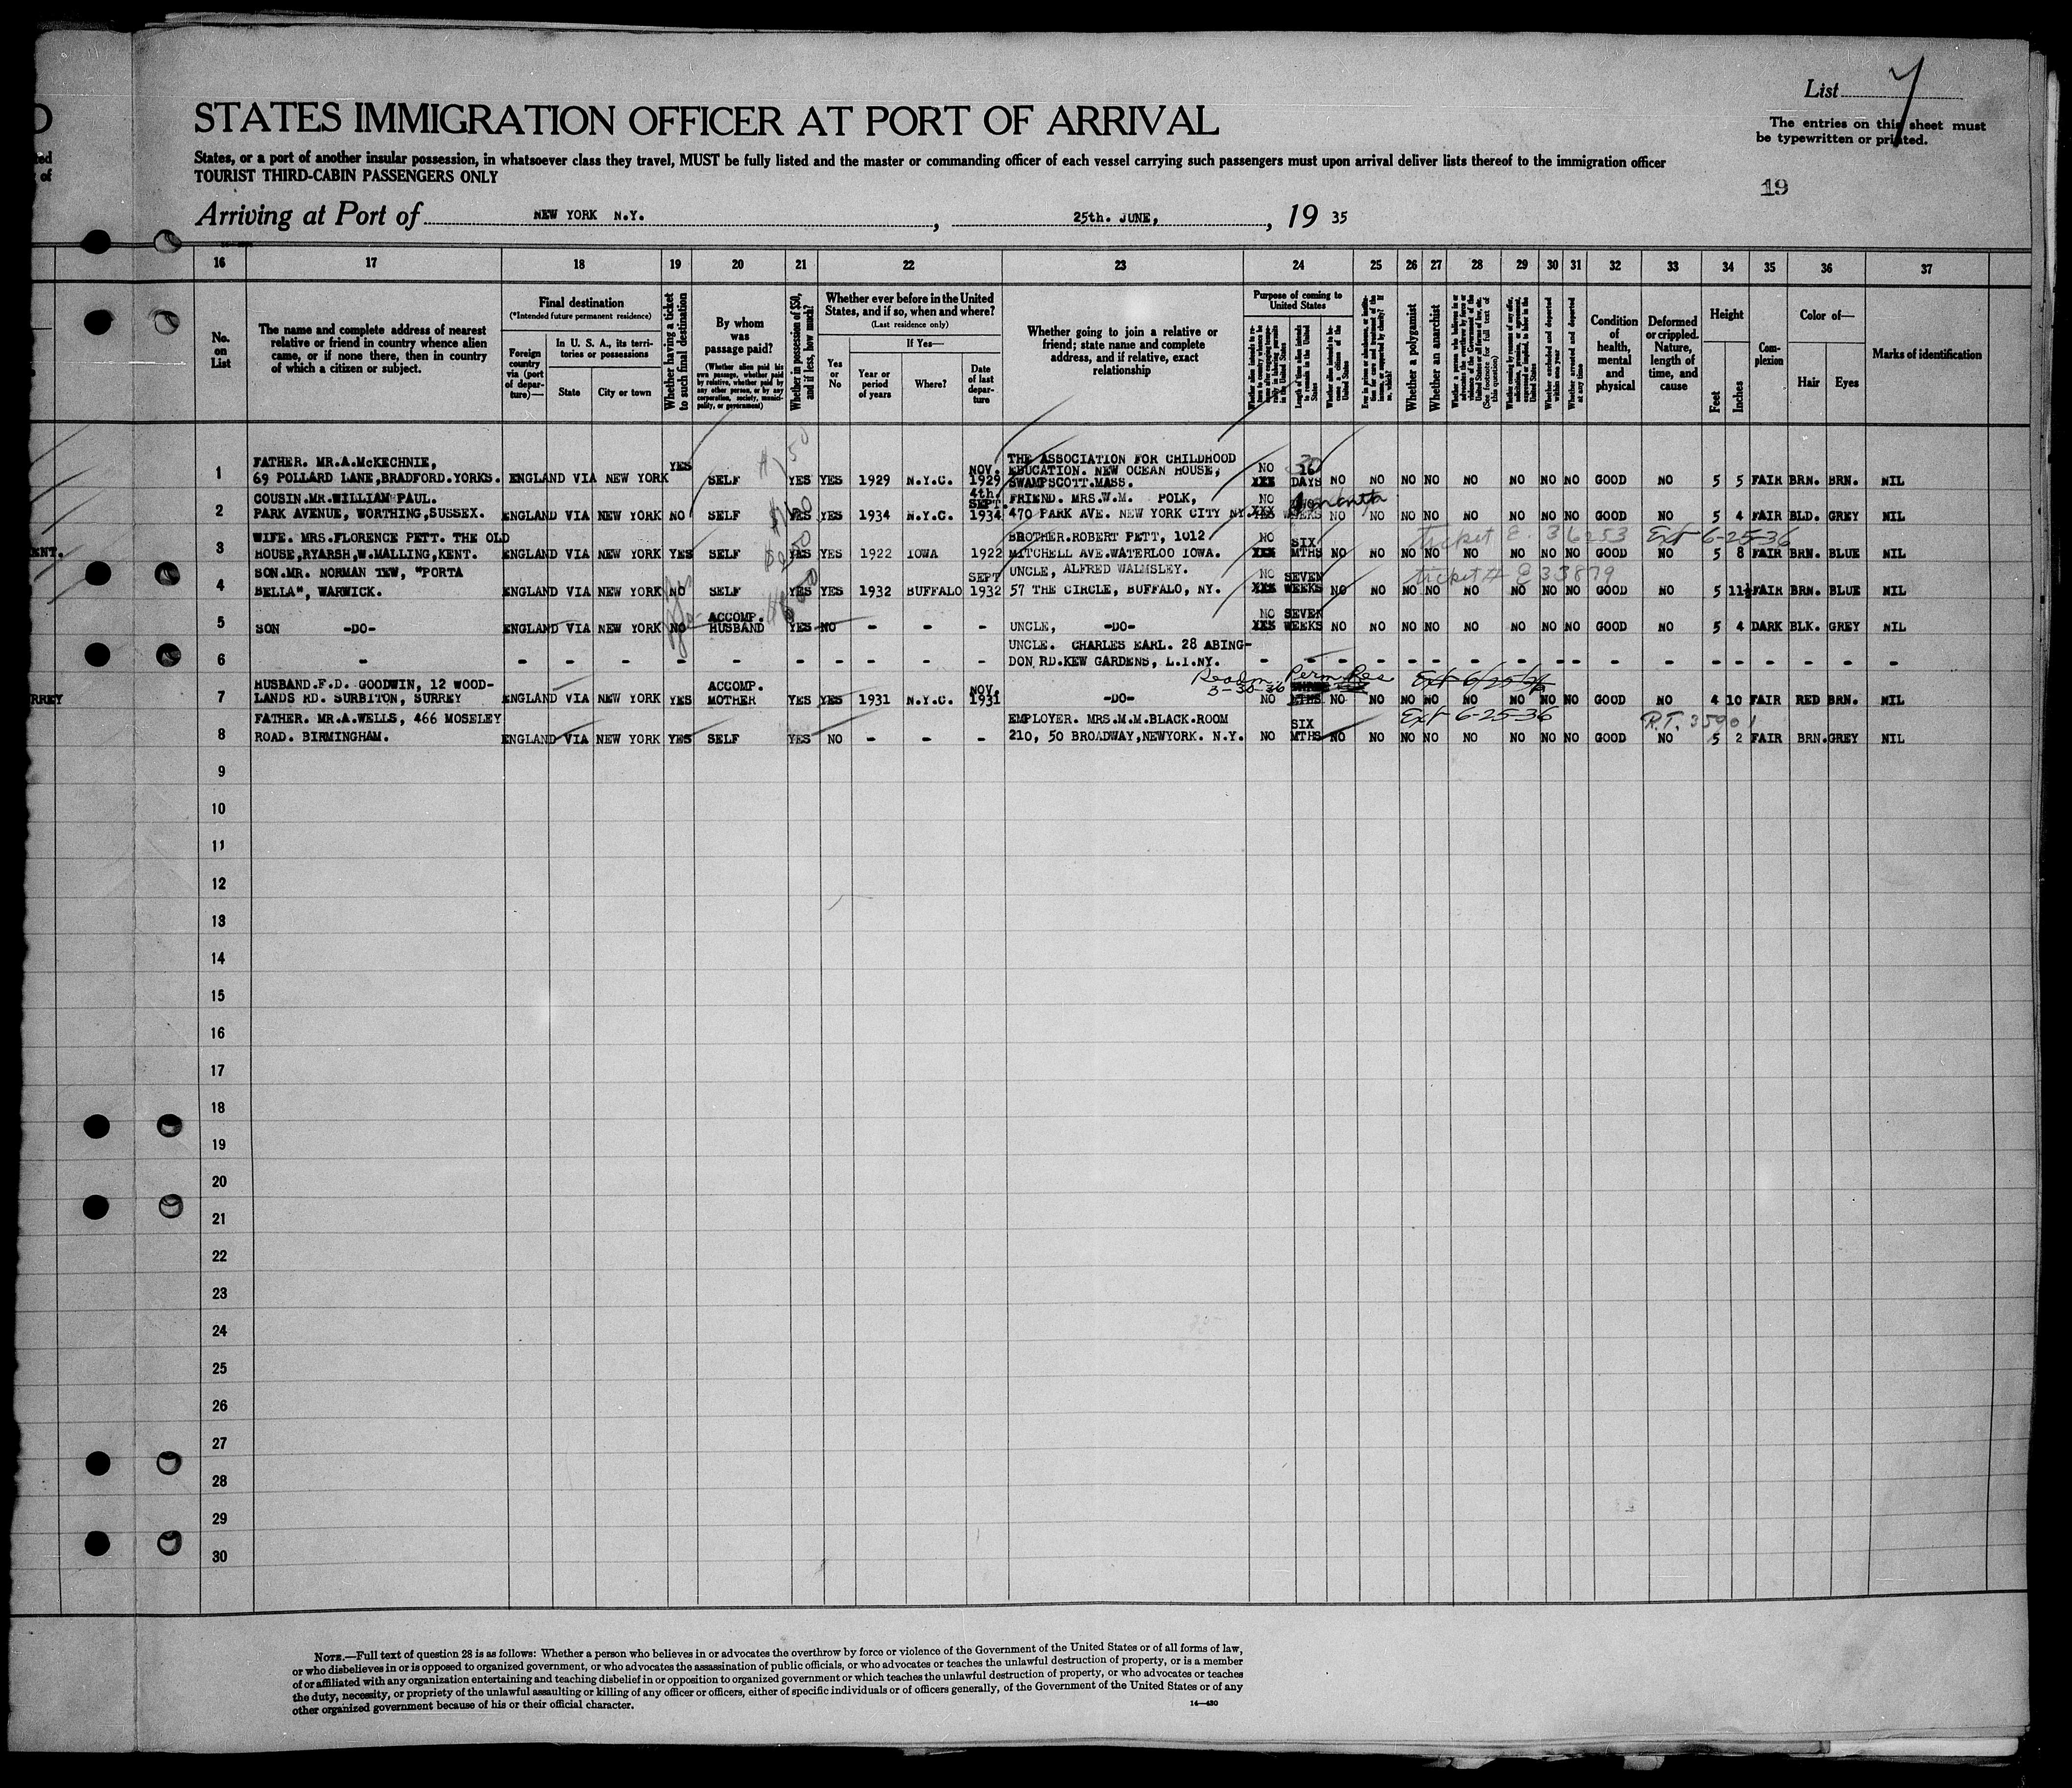 List 7
The entries on this sheet must
be typewritten or printed.
STATES IMMIGRATION OFFICER AT PORT OF ARRIVAL
States, or a port of another insular possession, in whatsoever class they travel, MUST be fully listed and the master or commanding officer of each vessel carrying such passengers must upon arrival deliver lists thereof to the immigration officer
TOURIST THIRD-CABIN PASSENGERS ONLY
19
Arriving at Port of NEW YORK N.Y., 25th. JUNE, 19 35
16 17 18 19 20 21 22 23 24 25 26 27 28 29 30 31 32 33 34 35 36 37
No. on List
The name and complete address of nearest
relative or friend in country whence alien
came, or if none there, then in country
of which a citizen or subject.
Final destination
(*Intended future permanent residence)
Foreign country via (port of departure)—
In U. S. A., its territories or possessions
State
City or town
Whether having a ticket to such final destination
By whom was passage paid?
(Whether alien paid his own passage, whether paid by relative, whether paid by any other person, or by any corporation, society, municipality, or government)
Whether in possession of $50, and if less, how much?
Whether ever before in the United
States, and if so, when and where?
(Last residence only)
Yes or No
If Yes—
Year or period of years
Where?
Date of last departure
Whether going to join a relative or
friend; state name and complete
address, and if relative, exact
relationship
Purpose of coming to United States
Length of time alien intends to remain in the United States
Whether alien intends to become a citizen of the United States
Whether a polygamist
Whether an anarchist
(See footnote for full text of this question)
Whether excluded and deported within one year
Whether arrested and deported at any time
Condition of health, mental and physical
Deformed or crippled. Nature, length of time, and cause
Height
Feet
Inches
Complexion
Color of—
Hair
Eyes
Marks of identification
1 FATHER. MR.A.McKECHNIE,
69 POLLARD LANE,BRADFORD.YORKS. ENGLAND VIA NEW YORK YES SELF $150 YES YES 1929 N.Y.C. NOV. 1929 THE ASSOCIATION FOR CHILDHOOD
EDUCATION. NEW OCEAN HOUSE,
SWAMPSCOTT.MASS. NO XXX 30 DAYS NO NO NO NO NO NO NO NO GOOD NO 5 5 FAIR BRN. BRN. NIL
2 COUSIN.MR.WILLIAM PAUL.
PARK AVENUE, WORTHING,SUSSEX. ENGLAND VIA NEW YORK NO SELF YES YES 1934 N.Y.C. 4th. SEPT. 1934 FRIEND. MRS.W.M. POLK,
470 PARK AVE. NEW YORK CITY NY. NO XXX WEEKS NO NO NO NO NO NO NO NO GOOD NO 5 4 FAIR BLD. GREY NIL
3 WIFE. MRS.FLORENCE PETT. THE OLD
HOUSE,RYARSH,W.MALLING,KENT. ENGLAND VIA NEW YORK YES SELF YES YES 1922 IOWA 1922 BROTHER.ROBERT PETT, 1012
MITCHELL AVE.WATERLOO IOWA. NO XXX SIX MTHS NO NO NO NO NO NO NO NO GOOD NO 5 8 FAIR BRN. BLUE NIL
ticket E. 36253 Ext 6-25-36
ENT.
4 SON.MR. NORMAN TEW, "PORTA
BELLA", WARWICK. ENGLAND VIA NEW YORK NO SELF YES YES 1932 BUFFALO SEPT 1932 UNCLE, ALFRED WALMSLEY.
57 THE CIRCLE, BUFFALO, NY. NO XXX SEVEN WEEKS NO NO NO NO NO NO NO NO GOOD NO 5 11½ FAIR BRN. BLUE NIL
ticket # E33879
5 SON -DO- ENGLAND VIA NEW YORK NO ACCOMP. HUSBAND YES NO - - - UNCLE, -DO- NO XXX SEVEN WEEKS NO NO NO NO NO NO NO NO GOOD NO 5 4 DARK BLK. GREY NIL
6 - - - - - - - - - - - UNCLE. CHARLES EARL. 28 ABING-
DON RD.KEW GARDENS, L.I.NY. - - - - - - - - - - - - - - - - - -
Readm. Perm Res
3-30-36 Ext 6/25/36
7 HUSBAND.F.D. GOODWIN, 12 WOOD-
LANDS RD. SURBITON, SURREY ENGLAND VIA NEW YORK YES ACCOMP. MOTHER YES YES 1931 N.Y.C. NOV. 1931 -DO- NO MTHS NO NO NO NO NO NO NO NO GOOD NO 4 10 FAIR RED BRN. NIL
RREY
8 FATHER. MR.A.WELLS, 466 MOSELEY
ROAD. BIRMINGHAM. ENGLAND VIA NEW YORK YES SELF YES NO - - - EMPLOYER. MRS.M.M.BLACK.ROOM
210, 50 BROADWAY,NEWYORK. N.Y. NO SIX MTHS NO NO NO NO NO NO NO NO GOOD NO 5 2 FAIR BRN. GREY NIL
Ext 6-25-36 R.T. 35901
9
10
11
12
13
14
15
16
17
18
19
20
21
22
23
24
25
26
27
28
29
30
NOTE.—Full text of question 28 is as follows: Whether a person who believes in or advocates the overthrow by force or violence of the Government of the United States or of all forms of law,
or who disbelieves in or is opposed to organized government, or who advocates the assassination of public officials, or who advocates or teaches the unlawful destruction of property, or is a member
of or affiliated with any organization entertaining and teaching disbelief in or opposition to organized government or which teaches the unlawful destruction of property, or who advocates or teaches
the duty, necessity, or propriety of the unlawful assaulting or killing of any officer or officers, either of specific individuals or of officers generally, of the Government of the United States or of any
other organized government because of his or their official character.
14—430